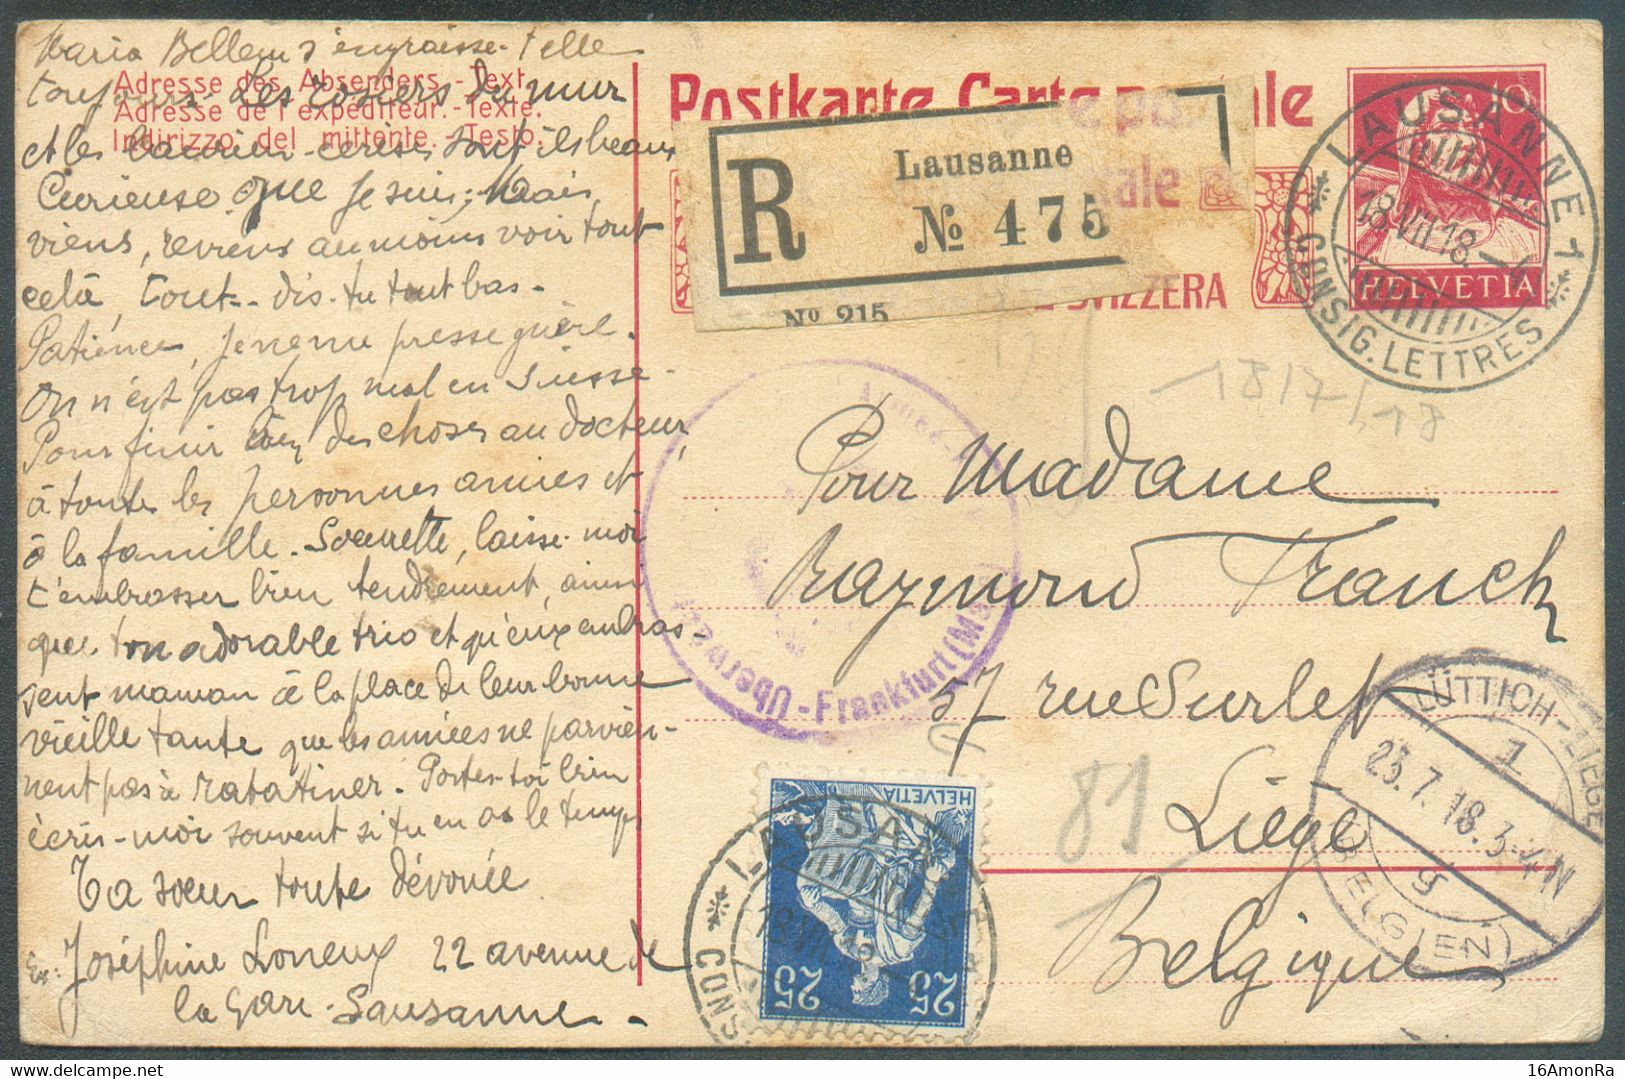 Maria Bellem s'engraisse-t'elle
toujours Les rosiers du mur
et les lauriers-cerises sont ils beaux
Curieuse que je suis; mais,
viens, reviens au moins voir tout
celà, tout-dis-tu tout bas-
Patience, je ne me presse guère.
On n'est pas trop mal en Suisse-
Pour finir des choses au docteur,
à toutes les personnes amies et
à la famille. Soeurette, laisse-moi
t'embrasser bien tendrement, ainsi
que ton adorable trio et qu'eux embras-
sent maman à la place de leur bonne
vieille tante que les années ne parvien-
nent pas à ratatiner. Portes-toi bien
écris-moi souvent si tu en as le temps
Ta soeur toute dévouée
Joséphine Loneux 22 avenue de
la Gare-Lausanne-
Adresse des Absenders.-Text.
Adresse de l'expéditeur.-Texte.
Indirizzo del mittente.-Testo.
Postkarte Carte postale
SVIZZERA
R
Lausanne
No 475
No 215
10
HELVETIA
LAUSANNE 1
18.VII.18.-4
CONSIG.LETTRES
18/7/18
Frankfurt (M
Pour Madame
Raymond Franck
57 rue Surlet
Liége
Belgique
81
LÜTTICH-LIEGE
1
23.7.18.3-4N
g
(BELGIEN)
HELVETIA
25 25
LAUSANNE
18.VII.18
CONS
16AmonRa